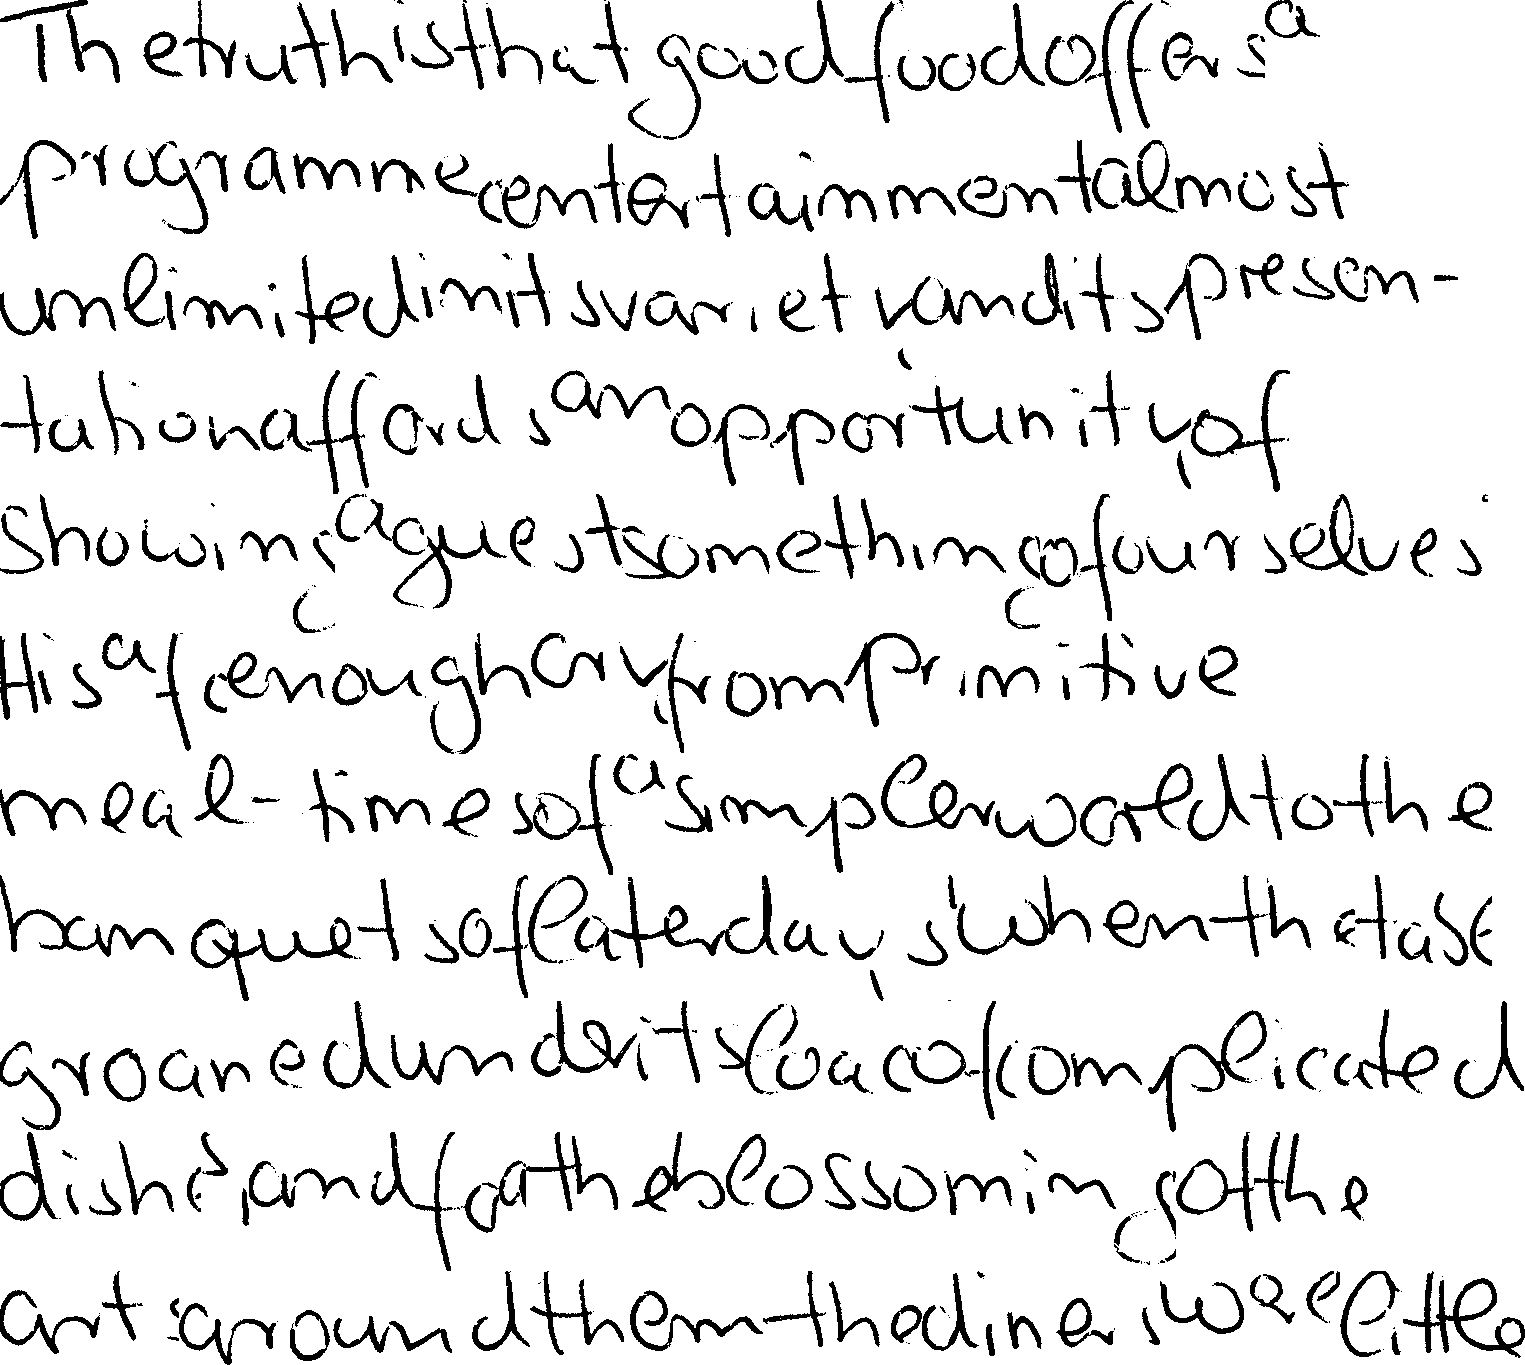 The truth is that good food offers a
programme entertainment almost
unlimited in its variety and its presen-
tation affords an opportunity of
showing a guest something of ourselves.
It is a f enough cry from primitive
meal-times of a simpler world to the
banquets of later days when the table
groaned under its load of complicated
dishes, and for the blossoming of the
arts around them the diners were little